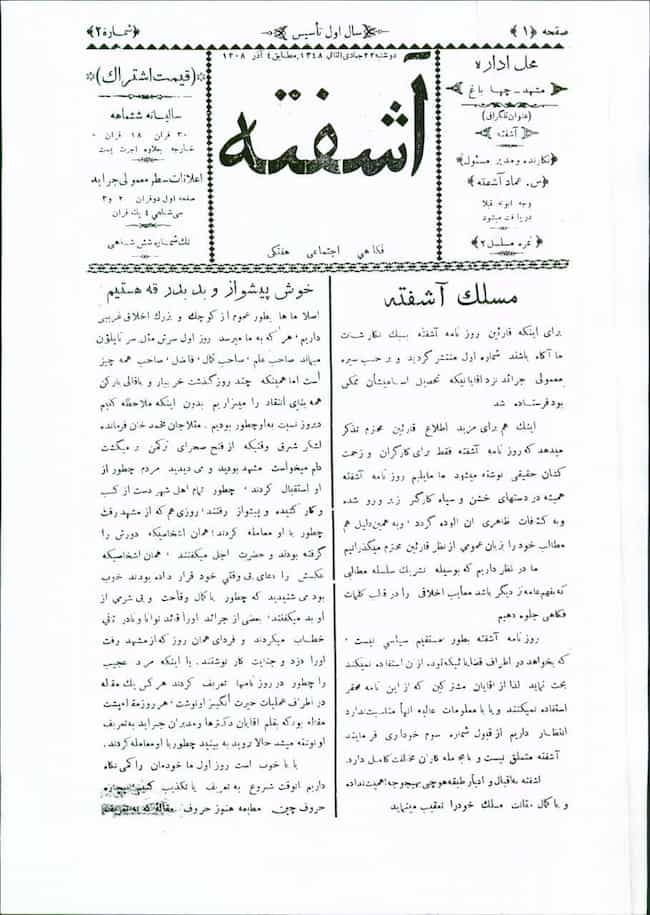 صفحه ﴿۱﴾
﴿سال اول تأسیس﴾
﴿شماره ۲﴾
محل اداره
مشهد – چهار باغ
(عنوان تلگرافی)
آشفته
(نگارنده و مدیر مسئول)
﴿س. عماد آشفته﴾
وجه ابونه قبلا
دریافت میشود
﴿نمره مسلسل ۲﴾
دوشنبه ۲۲ جمادی الثانی ۱۳۴۸ مطابق ٤ آذر ۱۳۰۸
آشفته
فکاهی اجتماعی هفتگی
(قیمت اشتراك)
سالیانه ششماهه
۳۰ قران ۱۸ قران
خارجه بعلاوه اجرت پست
اعلانات سطر معمولی جرایه
صفحه اول دوقران ۲ و ۳
سی شاهی ٤ یك قران
تك شماره شش شاهی
مسلك آشفته
برای اینکه قارئین روز نامه آشفته بسبك نگار شات
ما آگاه باشند شماره اول منتشر گردید و بر حسب سیره
معمولی جرائد نزد اقایانیکه تحصیل اسامیشان ممکن
بود فرستاده شد
اینك هم برای مزید اطلاع قارئین محترم تذکر
میدهد که روز نامه آشفته فقط برای کارگران و زحمت
کشان حقیقی نوشته میشود ما مایلیم روز نامه آشفته
همیشه در دستهای خشن و سیاه کارگر زیر و رو شده
وبه کثافات ظاهری ان الوده گردد ، وبه همین دلیل هم
مطالب خود را بزبان عمومی از نظر قارئین محترم میگذرانیم
ما در نظر داریم که بوسیله نشریك سلسله مطالبی
که بفهم عامه نزدیکتر باشد معایب اخلاقی را در قالب کلمات
فکاهی جلوه دهیم
روز نامه آشفته بطور مستقیم سیاسی نیست ،
که بخواهد در اطراف قضایائیکه توده ازان استفاده نمیکند
بحث نماید لذا از اقایان مشترکین که از این نامه محقر
استفاده نمیکنند ویا با معلومات عالیه انها مناسبت ندارد
انتظار داریم از قبول شماره سوم خودداری فرمایند
آشفته متملق نیست و با مجامله کاران مخالفت کامل دارد.
اشفته به اقبال و ادبار طبقه هوچی بهیچوجه اهمیت نداده
و با کمال متانت مسلك خود را تعقیب مینماید
خوش پیشواز و بد بدرقه هستیم
اصلا ما ها بطور عموم از کوچك و بزرك اخلاق غریبی
داریم ، هر که به ما میرسد روز اول سرش مثل سر ناپلؤن
میماند صاحب علم ، صاحب کمال ، فاضل ، صاحب همه چیز
است اما همینکه چند روز گذشت خر بیار و باقالی بارکن
همه بنای انتقاد را میگزاریم بدون اینکه ملاحظه کنیم
دیروز نسبت به او چطور بودیم . مثلا جان محمد خان فرمانده
لشکر شرق وقتیکه از فتح صحرای ترکمن بر میگشت
دلم میخواست مشهد بودید و می دیدید مردم چطور از
او استقبال کردند ، چطور تمام اهل شهر دست از کسب
و کار کشیده و پیشواز رفتند ، روزی هم که از مشهد رفت
چطور با او معامله کردند؛ همان اشخاصیکه دورش را
گرفته بودند و حضرت اجل میگفتند ، همان اشخاصیکه
عکسش را دعای بی وقتی خود قرار داده بودند خوب
بود می شنیدید که چطور با کمال وقاحت و بی شرمی از
او بد میگفتند؛ بعضی از جرائد اورا قائد توانا و نادر ثانی
خطاب میکردند و فردای همان روز که از مشهد رفت
اورا دزد و جنایت کار نوشتند. یا اینکه مرد عجیب
را چطور در روزنامها تعریف کردند هر کس یك مقاله
در اطراف عملیات حیرت انگیز او نوشت ، هر روز مقاله پشت
مقاله بود که بقلم اقایان دکترها و مدیران جراید به تعریف
او نوشته میشد حالا بروید به بینید چطور با او معامله کردند.
یا با خوب است روز اول ما خودمان را کمی نگاه
داریم انوقت شروع به تعریف یا تکذیب کنیم بیچاره
حروف چین مطبعه هنوز حروف مقالهٔ که به تعریف